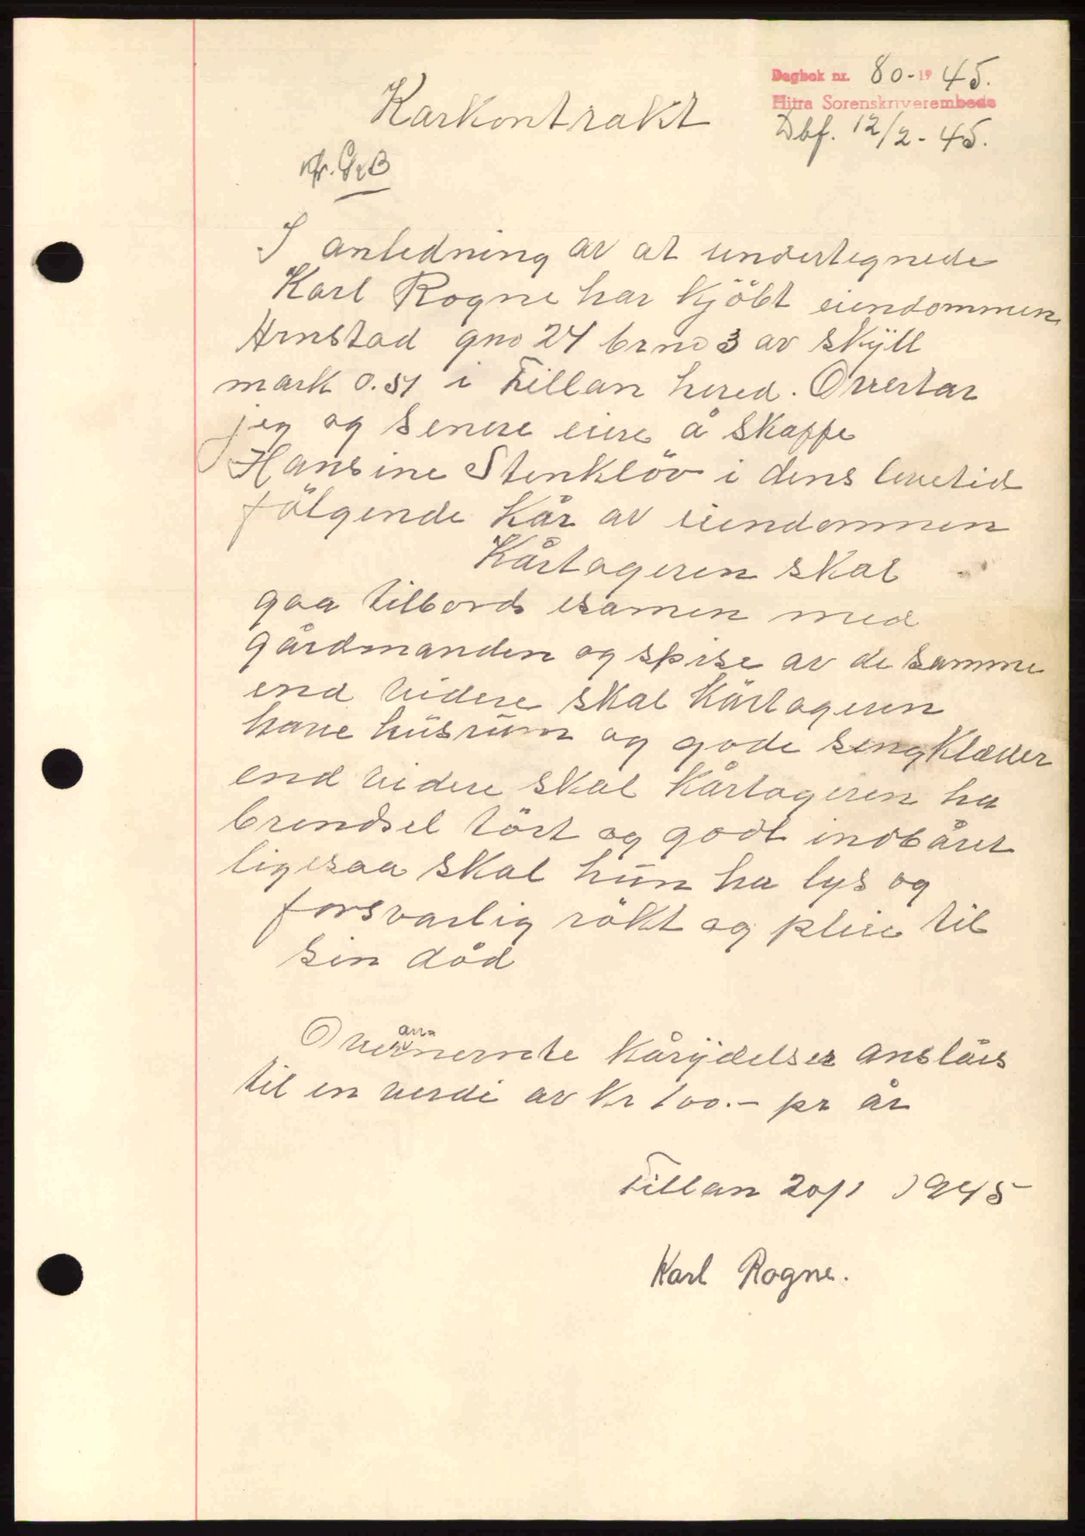 Dagbok nr. 80-1945.
Hitra Sorenskriverembede
Dbf. 12/2-45.
Karkontrakt
I anledning av at undertegnede
Karl Rogne har kjöbt eiendommen
Arnstad gno 24 brno 3 av skyll
mark 0.51 i Fillan hered. Overtar
jeg og senere eiere å skaffe
Hansine Stenklöv i dens levetid
fölgende kår av eiendommen
Kårtageren skal
gaa tilbords isamen med
gårdmanden og spise av de samme
end videre skal kårtageren
have husrum og gode sengklæder
end videre skal kårtageren ha
brendsel tört og godt indbåret
ligesaa skal hun ha lys og
forsvarlig rökt og pleie til
sin död
Ovennemte kårydelser anslåes
til en verdi av kr 100.- pr år
Fillan 20/1 1945
Karl Rogne.